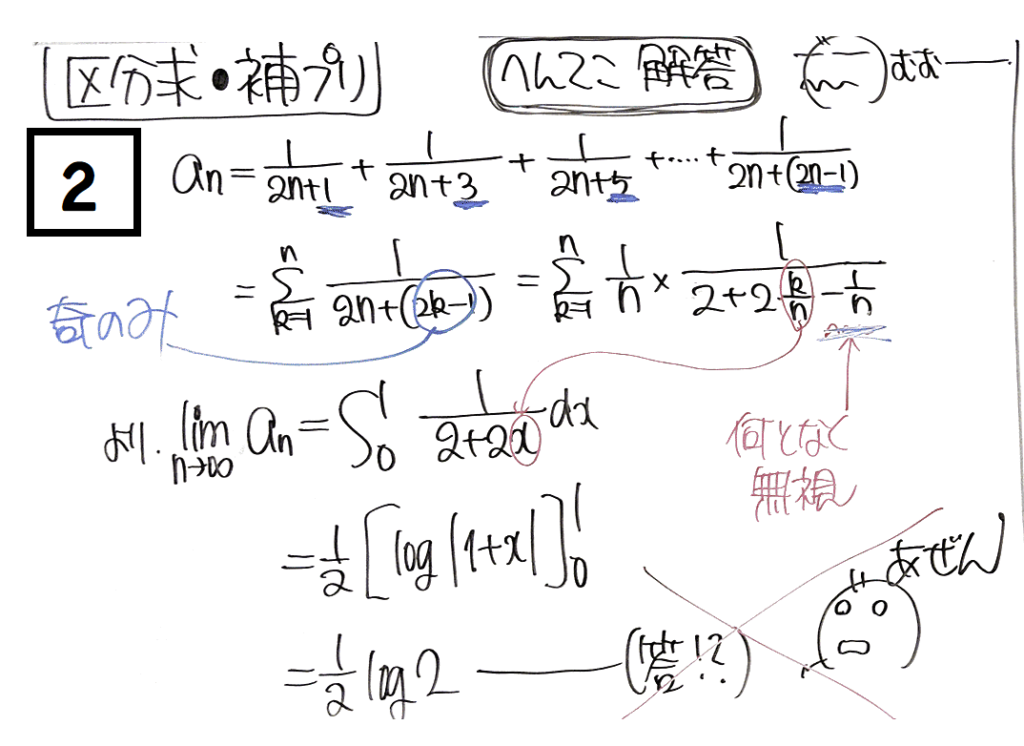 区分求・補プリ
へんてこ 解答
むむー
2
an = 1/(2n+1) + 1/(2n+3) + 1/(2n+5) + ‥‥ + 1/(2n+(2n-1))
= Σ_{k=1}^{n} 1/(2n+(2k-1)) = Σ_{k=1}^{n} 1/n × 1/(2+2・k/n - 1/n)
奇のみ
より. lim_{n→∞} an = ∫_0^1 1/(2+2x) dx
何となく
無視
= 1/2 [log|1+x|]_0^1
あぜん
= 1/2 log2 ── (答!?)